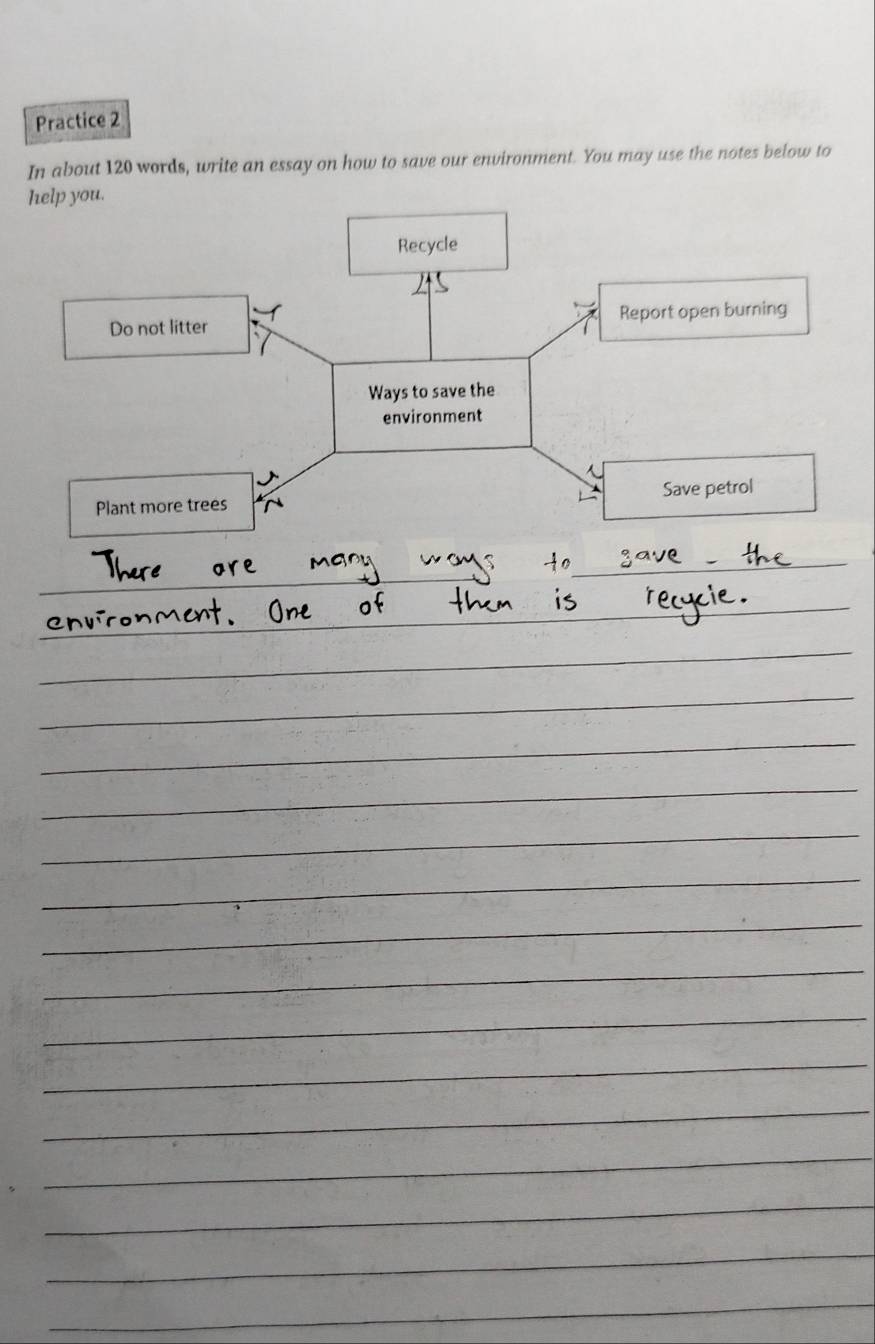 Practice 2
In about 120 words, write an essay on how to save our environment. You may use the notes below to
help you.
Recycle
Do not litter
Report open burning
Ways to save the
environment
Plant more trees
Save petrol
There are many ways to save - the
environment. One of them is recycie.